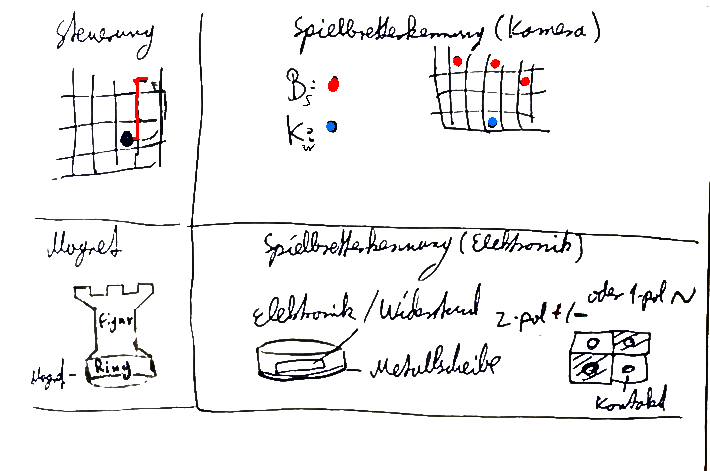 Steuerung
Spielbretterkennung (Kamera)
B s:
K w:
Magnet
Spielbretterkennung (Elektronik)
Figur
Magnet - Ring
Elektronik / Widerstand
Metallscheibe
2-pol +/-
oder 1-pol ~
Kontakt